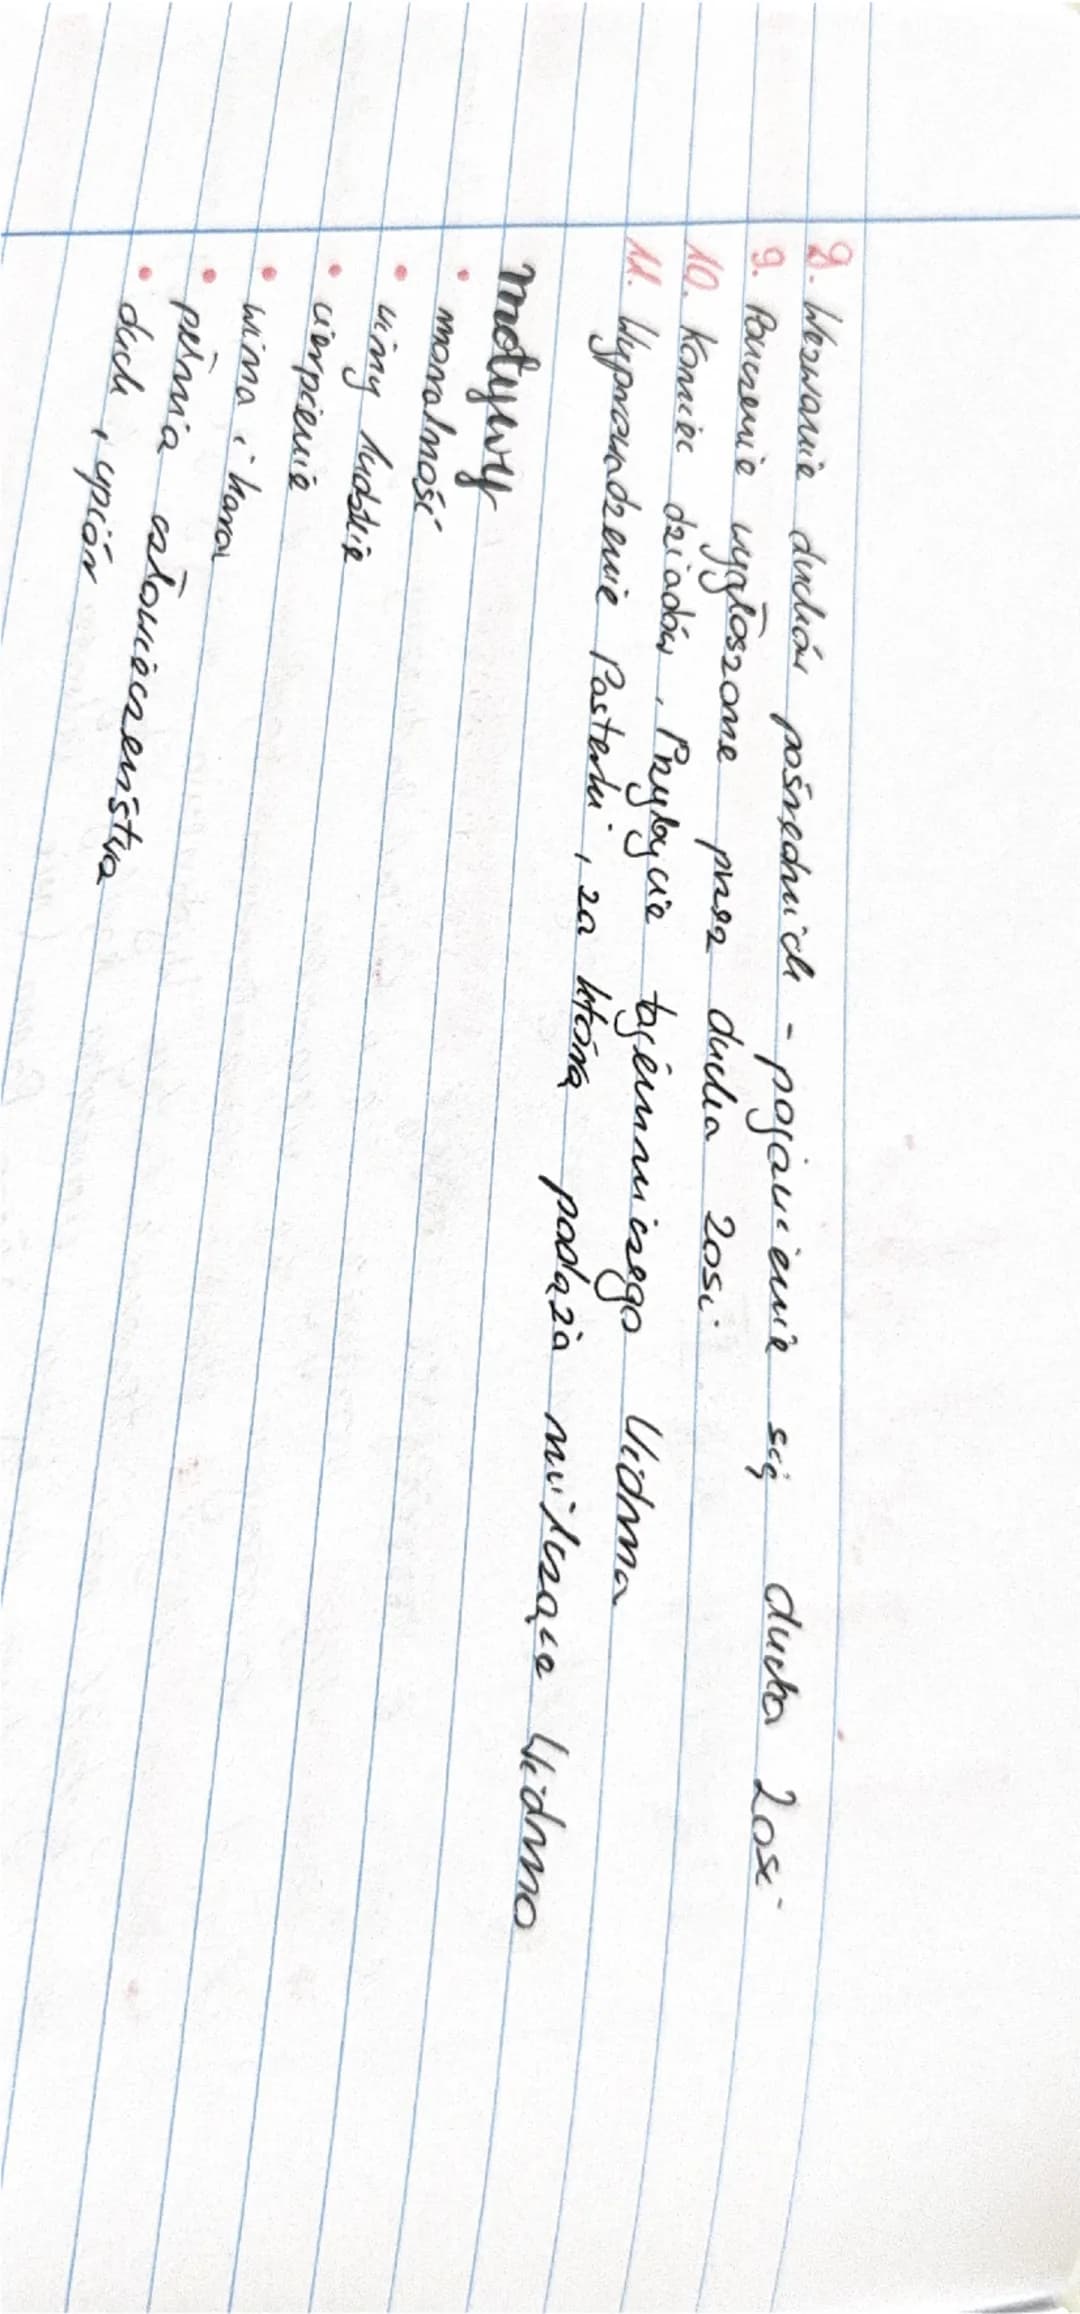 8. Wezwanie duchów pośrednich - pojawienie się ducha Zosi
9. Pouczenie wygłoszone przez ducha Zosi
10. Koniec dziadów, Przybycie tajemniczego Widma
11. Wyprowadzenie Pasterki, za którą podąża milczące Widmo
motywy
• moralność
• winy ludzkie
• cierpienie
• wina i kara
• pełnia człowieczeństwa
• duch, upiór